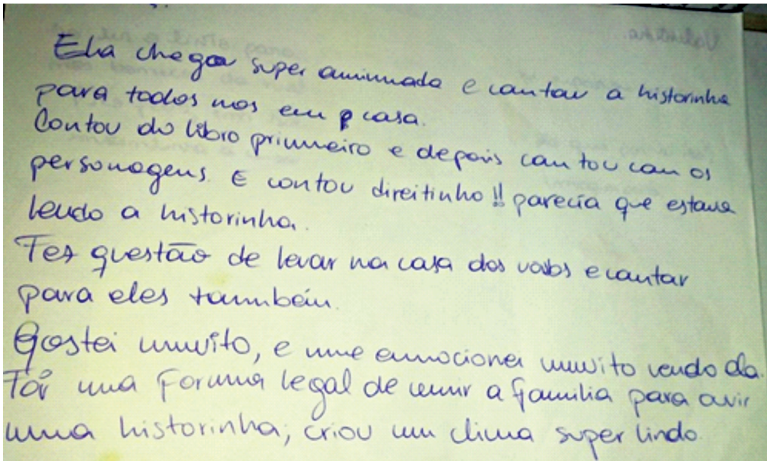 Ela chegou super animada e cantou a historinha
para todos nos em casa.
Contou do libro primeiro e depois cantou con os
personagens. E contou direitinho!! parecia que estava
lendo a historinha.
Fez questão de levar na casa dos vovos e cantar
para eles tambéin.
Gostei muito, e me emocionei muito vendo ela.
Foi uma forma legal de unir a família para ouvir
uma historinha, criou um clima super lindo.